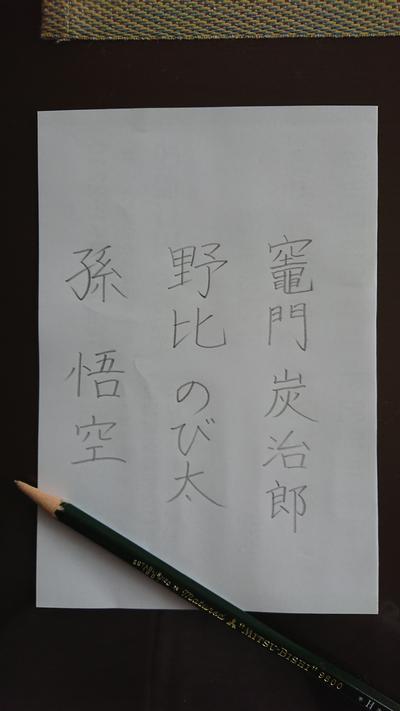 竈門 炭治郎
野比 のび太
孫 悟空
"MITSU-BISHI" 9800
H